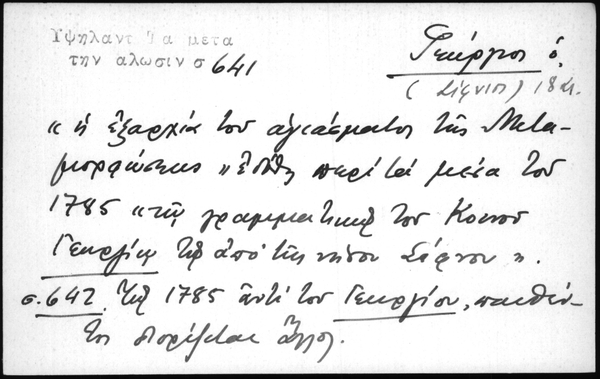 Ὑψηλαντ Τα μετα
την αλωσιν σ 641
Γεώργιος ὁ
(Σίφνιος) 18 αι.
« ἡ ἐξαρχία τοῦ ἁγιάσματος τῆς Μετα-
μορφώσεως » ἐδόθη περὶ τὰ μέσα τοῦ
1785 « τῷ γραμματικῷ τοῦ Κοινοῦ
Γεωργίῳ τῷ ἀπὸ τῆς νήσου Σίφνου ».
σ. 642. Τῷ 1785 ἀντὶ τοῦ Γεωργίου, παυθέν-
τος διορίζεται ἄλλος.